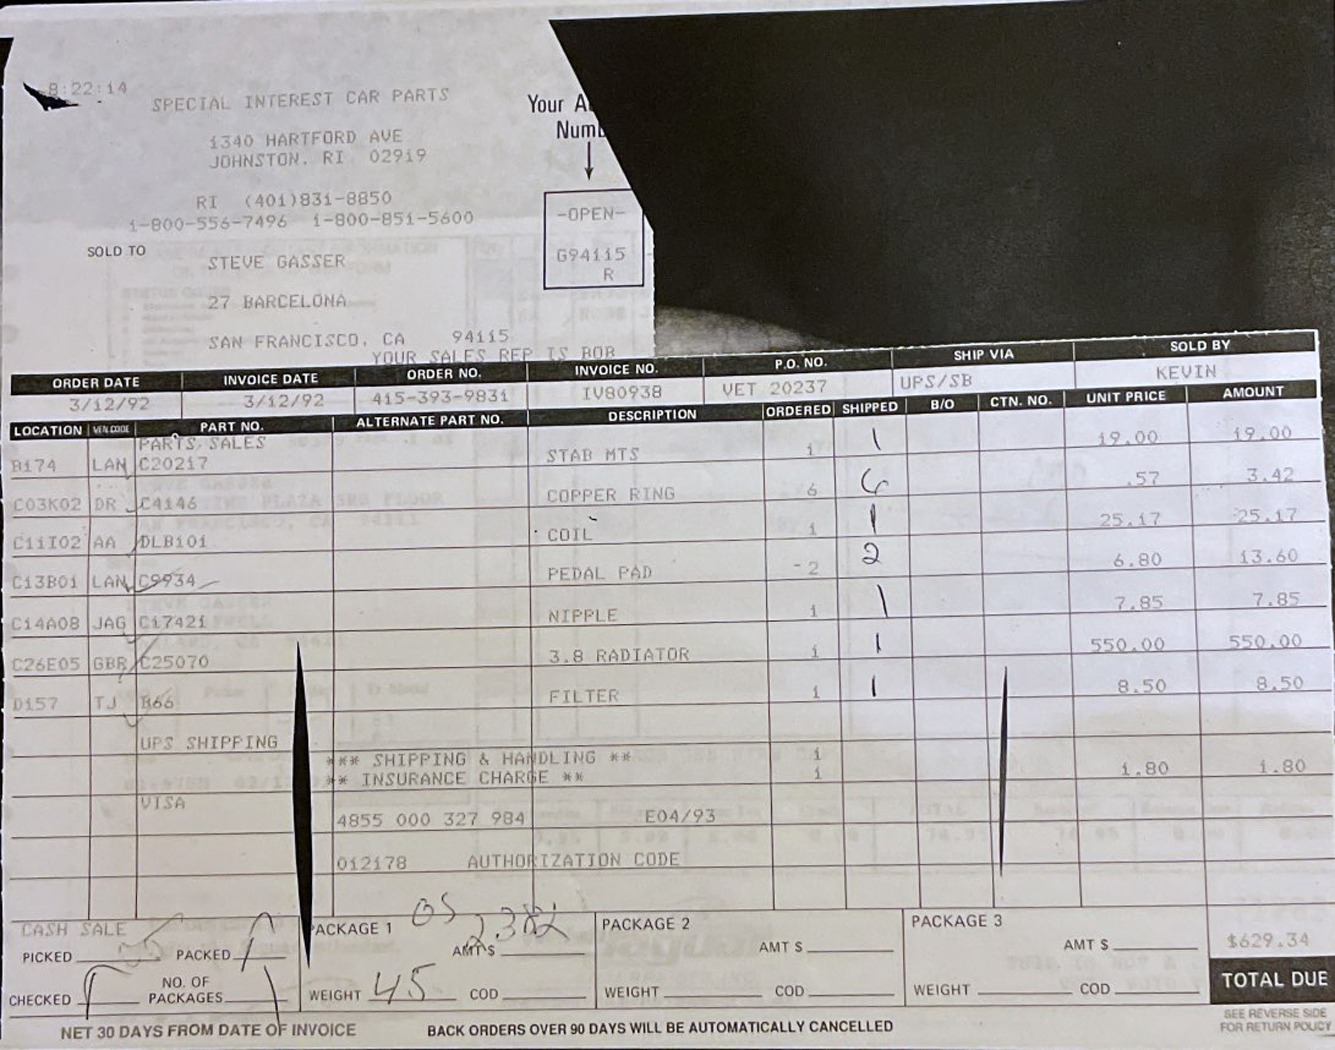 8:22:14
SPECIAL INTEREST CAR PARTS
1340 HARTFORD AVE
JOHNSTON, RI 02919
RI (401)831-8850
1-800-556-7496 1-800-851-5600
Your A
Numb
-OPEN-
G94115
R
SOLD TO
STEVE GASSER
27 BARCELONA
SAN FRANCISCO, CA 94115
YOUR SALES REP IS BOB
ORDER DATE INVOICE DATE ORDER NO. INVOICE NO. P.O. NO. SHIP VIA SOLD BY
3/12/92 3/12/92 415-393-9831 IV80938 VET 20237 UPS/SB KEVIN
LOCATION VEN.CODE PART NO. ALTERNATE PART NO. DESCRIPTION ORDERED SHIPPED B/O CTN. NO. UNIT PRICE AMOUNT
PARTS SALES
B174 LAN C20217 STAB MTS 1 1 19.00 19.00
C03K02 DR C4146 COPPER RING 6 6 .57 3.42
C11I02 AA DLB101 COIL 1 1 25.17 25.17
C13B01 LAN C9934 PEDAL PAD 2 2 6.80 13.60
C14A08 JAG C17421 NIPPLE 1 1 7.85 7.85
C26E05 GBR C25070 3.8 RADIATOR 1 1 550.00 550.00
D157 TJ B66 FILTER 1 1 8.50 8.50
UPS SHIPPING
*** SHIPPING & HANDLING ** 1
** INSURANCE CHARGE ** 1 1.80 1.80
VISA
4855 000 327 984 E04/93
012178 AUTHORIZATION CODE
CASH SALE
PICKED PACKED
CHECKED NO. OF PACKAGES
PACKAGE 1 OS
AMT $
WEIGHT 45 COD
PACKAGE 2
AMT $
WEIGHT COD
PACKAGE 3
AMT $
WEIGHT COD
$629.34
TOTAL DUE
NET 30 DAYS FROM DATE OF INVOICE
BACK ORDERS OVER 90 DAYS WILL BE AUTOMATICALLY CANCELLED
SEE REVERSE SIDE
FOR RETURN POLICY